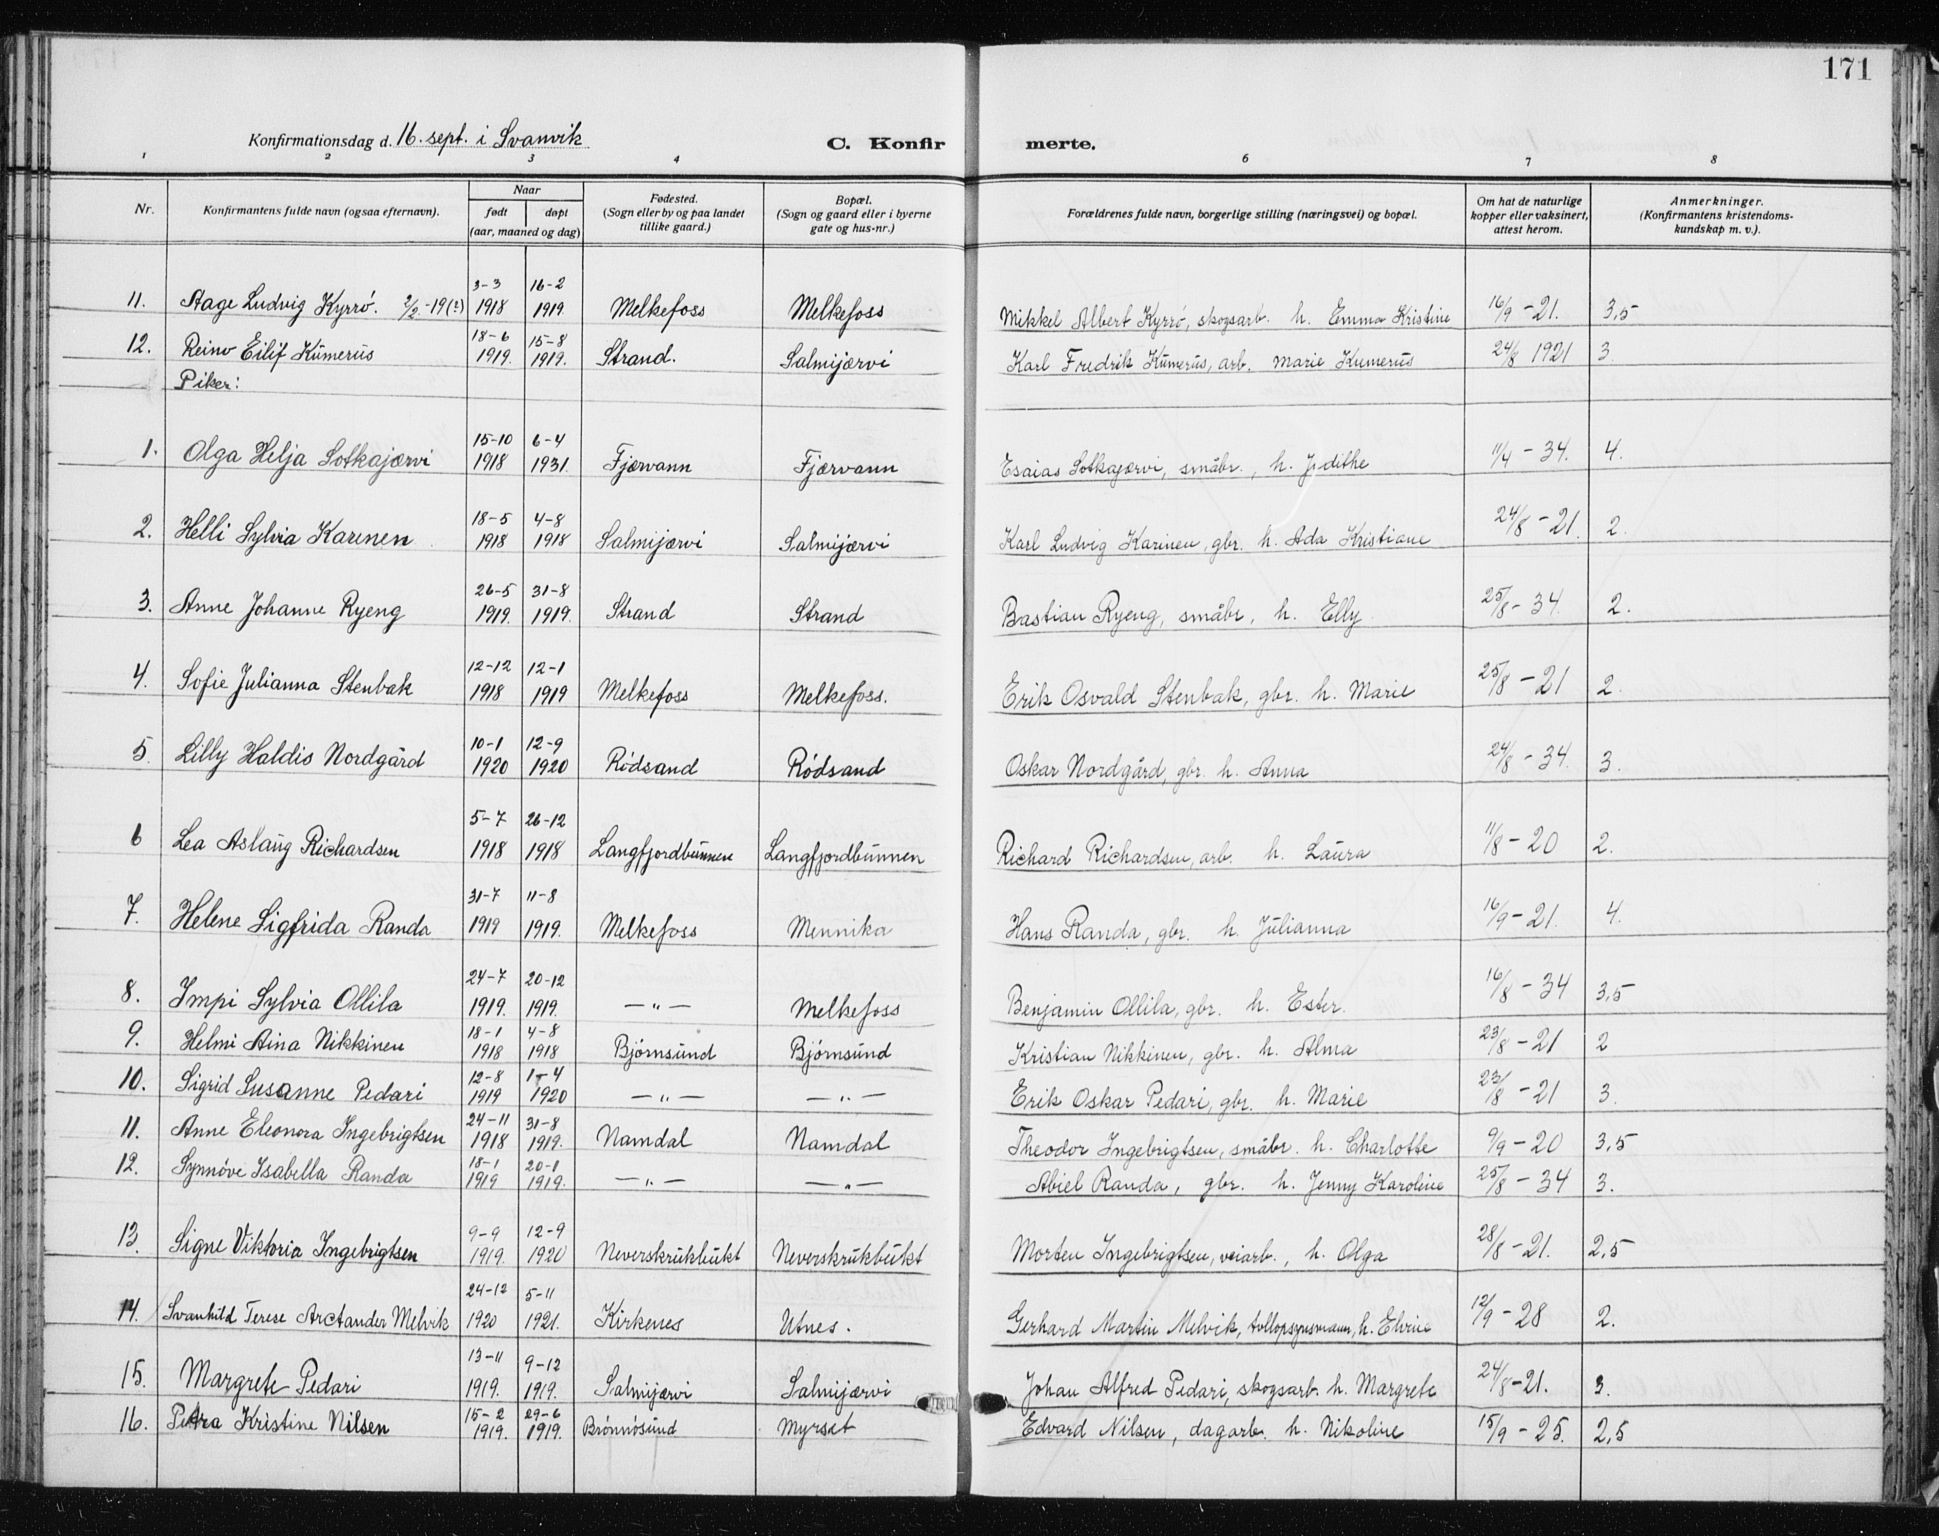 171
Konfirmationsdag d. 16. sept. i Svanvik
C. Konfirmerte.
1 2 3 4 6 7 8
Nr. | Konfirmantens fulde navn (ogsaa efternavn). | Naar født | døpt (aar, maaned og dag) | Fødested. (Sogn eller by og paa landet tillike gaard.) | Bopæl. (Sogn og gaard eller i byerne gate og hus-nr.) | Forældrenes fulde navn, borgerlige stilling (næringsvei) og bopæl. | Om hat de naturlige kopper eller vaksinert, attest herom. | Anmerkninger. (Konfirmantens kristendomskundskap m. v.).
11. Aage Ludvig Kyrrø. 2/2-19(?) 3-3 1918 16-2 1919. Melkefoss Melkefoss Mikkel Albert Kyrrø, skogsarb. h. Emma Kristine 16/9-21. 3,5
12. Reino Eilif Kumerus 18-6 1919. 15-8 1919. Strand. Salmijærvi Karl Fredrik Kumerus, arb. Marie Kumerus 24/8 1921 3.
Piker:
1. Olga Helja Sotkajærvi 15-10 1918 6-4 1931. Fjærvann Fjærvann Esaias Sotkajærvi, småbr., h. Judithe 11/4-34. 4.
2. Helli Sylvia Karinen 18-5 1918 4-8 1918 Salmijærvi Salmijærvi Karl Ludvig Karinen, gbr. h. Ada Kristiane 24/8-21. 2.
3. Anne Johanne Ryeng 26-5 1919. 31-8 1919. Strand Strand Bastian Ryeng, småbr, h. Elly. 25/8-34. 2.
4. Sofie Julianna Stenbak 12-12 1918 12-1 1919 Melkefoss Melkefoss. Erik Osvald Stenbak, gbr. h. Marie 25/8-21 2.
5. Lilly Haldis Nordgård 10-1 1920 12-9 1920 Rødsand Rødsand Oskar Nordgård, gbr. h. Anna 24/8-34. 3.
6 Lea Aslaug Richardsen 5-7 1918 26-12 1918 Langfjordbunnen Langfjordbunnen Richard Richardsen, arb. h. Laura 11/8-20 2.
7. Helene Sigfrida Randa 31-7 1919 11-8 1919. Melkefoss Mennika Hans Randa, gbr. h. Julianna 16/9-21. 4.
8. Impi Sylvia Ollila 24-7 1919. 20-12 1919. —"— Melkefoss Benjamin Ollila, gbr. h. Ester. 16/8-34 3,5
9. Helmi Aina Nikkinen 18-1 1918 4-8 1918 Bjørnsund Bjørnsund Kristian Nikkinen, gbr. h. Alma 23/8-21 2
10. Sigrid Susanne Pedari 12-8 1919 1-4 1920 —"— —"— Erik Oskar Pedari, gbr. h. Marie 23/8-21 3.
11. Anne Eleonora Ingebrigtsen 24-11 1918 31-8 1919. Namdal Namdal Theodor Ingebrigtsen, småbr. h. Charlotte 9/9-20 3,5
12. Synnøve Isabella Randa 18-1 1919 20-1 1919. —"— —"— Abiel Randa, gbr. h. Jenny Karoline 25/8-34 3.
13. Signe Viktoria Ingebrigtsen 9-9 1919. 12-9 1920 Neverskrukbukt Neverskrukbukt Morten Ingebrigtsen, veiarb., h. Olga 28/8-21. 2,5
14. Svanhild Terese Arctander Melvik 24-12 1920 5-11 1921. Kirkenes Utnes. Gerhard Martin Melvik, tollopsynsmann, h. Elvine 12/9-28 2.
15. Margrete Pedari 13-11 1919. 9-12 1919. Salmijærvi Salmijærvi Johan Alfred Pedari, skogsarb. h. Margrete 24/8-21. 3.
16. Petra Kristine Nilsen 15-2 1919. 29-6 1919. Brønnøsund Myrset Edvard Nilsen, dagarb. h. Nikoline 15/9-25. 2,5